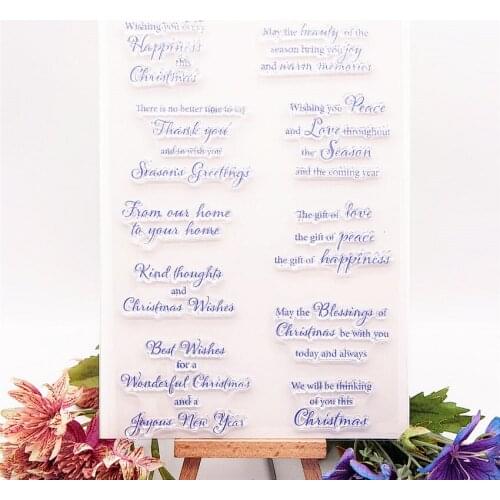 Wishing you every
Happiness
this
Christmas
There is no better time to say
Thank you
and to wish you
Season's Greetings
From our home
to your home
Kind thoughts
and
Christmas Wishes
Best Wishes
for a
Wonderful Christmas
and a
Joyous New Year
May the beauty of the
season bring you joy
and warm memories
Wishing you Peace
and Love throughout
the Season
and the coming year
The gift of love
the gift of peace
the gift of happiness
May the Blessings of
Christmas be with you
today and always
We will be thinking
of you this
Christmas